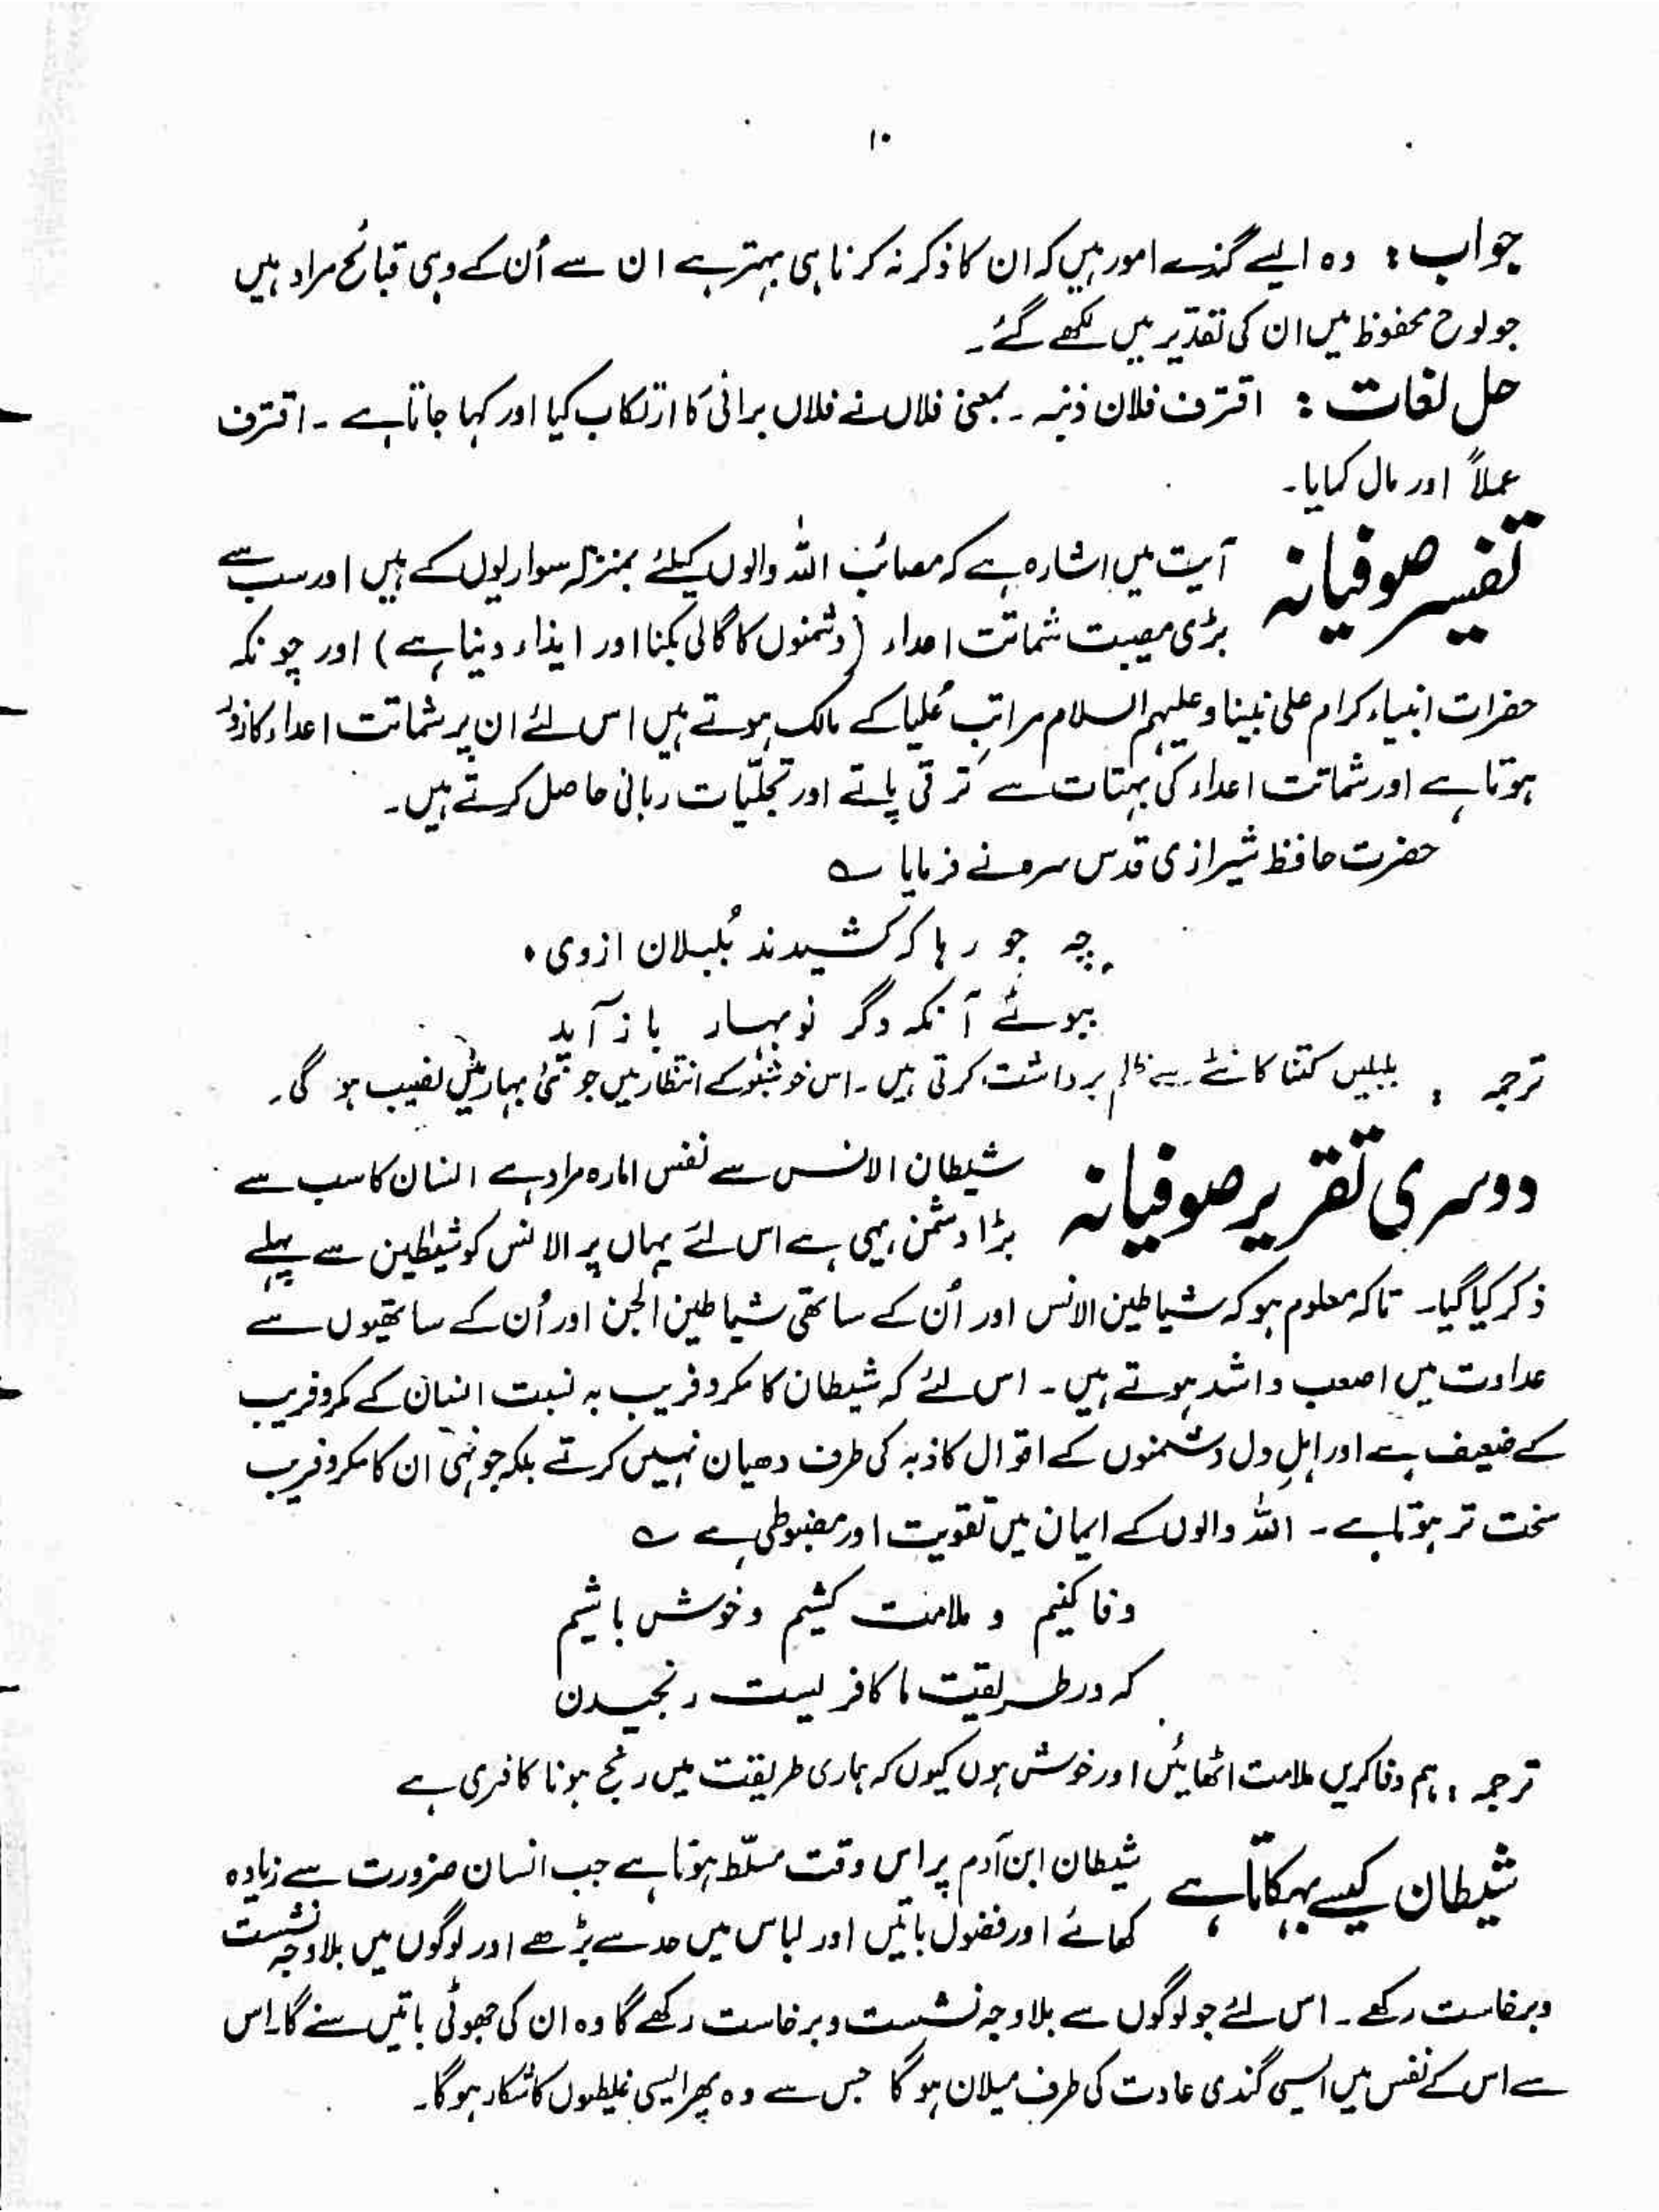 ۱۰
جواب : وہ ایسے گندے امور ہیں کہ ان کا ذکر نہ کرنا ہی بہتر ہے ان سے اُن کے وہی قبائح مراد ہیں
جو لوح محفوظ میں ان کی تقدیر میں لکھے گئے۔
حل لغات : اقترف فلان ذنبہ ۔ بمعنی فلاں نے فلاں برائی کا ارتکاب کیا اور کہا جاتا ہے ۔ اقترف
عملاً اور مال کمایا۔
تفسیر صوفیانہ آیت میں اشارہ ہے کہ مصائب اللہ والوں کیلئے بمنزلہ سواریوں کے ہیں اور سب سے
بڑی مصیبت شماتت اعداء (دشمنوں کا گالی بکنا اور ایذاء دینا ہے) اور چونکہ
حضرات انبیاء کرام علی نبینا وعلیہم السلام مراتبِ عُلیا کے مالک ہوتے ہیں اس لئے ان پر شماتت اعداء کا نزول
ہوتا ہے اور شماتت اعداء کی بہتات سے ترقی پاتے اور تجلّیات ربانی حاصل کرتے ہیں۔
حضرت حافظ شیرازی قدس سرہ نے فرمایا ؎
چہ جورہا کہ کشیدند بُلبلان از وی ۰
ببوئے آنکہ دگر نوبہار باز آید
ترجمہ : بلبلیں کتنا کانٹے سے ظلم برداشت کرتی ہیں۔ اس خوشبو کے انتظار میں جو نئی بہار میں نصیب ہو گی۔
دوسری تقریر صوفیانہ شیطان الانس سے نفس امارہ مراد ہے انسان کا سب سے
بڑا دشمن یہی ہے اس لئے یہاں پر الانس کو شیٰطین سے پہلے
ذکر کیا گیا۔ تاکہ معلوم ہو کہ شیاطین الانس اور اُن کے ساتھی شیاطین الجن اور اُن کے ساتھیوں سے
عداوت میں اصعب و اشد ہوتے ہیں ۔ اس لئے کہ شیطان کا مکر و فریب بہ نسبت انسان کے مکر و فریب
کے ضعیف ہے اور اہلِ دل دشمنوں کے اقوال کاذبہ کی طرف دھیان نہیں کرتے بلکہ جونہی ان کا مکر و فریب
سخت تر ہوتا ہے ۔ اللہ والوں کے ایمان میں تقویت اور مضبوطی ہے ؎
وفا کنیم و ملامت کشیم و خوش باشیم
کہ در طریقت ما کافریست رنجیدن
ترجمہ : ہم وفا کریں ملامت اٹھائیں اور خوش ہوں کیوں کہ ہماری طریقت میں رنج ہونا کافری ہے
شیطان کیسے بہکاتا ہے شیطان ابن آدم پر اس وقت مسلّط ہوتا ہے جب انسان ضرورت سے زیادہ
کھائے اور فضول باتیں اور لباس میں حد سے بڑھے اور لوگوں میں بلاوجہ نشست
و برخاست رکھے ۔ اس لئے جو لوگوں سے بلاوجہ نشست و برخاست رکھے گا وہ ان کی جھوٹی باتیں سنے گا۔ اس
سے اس کے نفس میں ایسی گندی عادت کی طرف میلان ہو گا جس سے وہ پھر ایسی غلطیوں کا شکار ہو گا۔